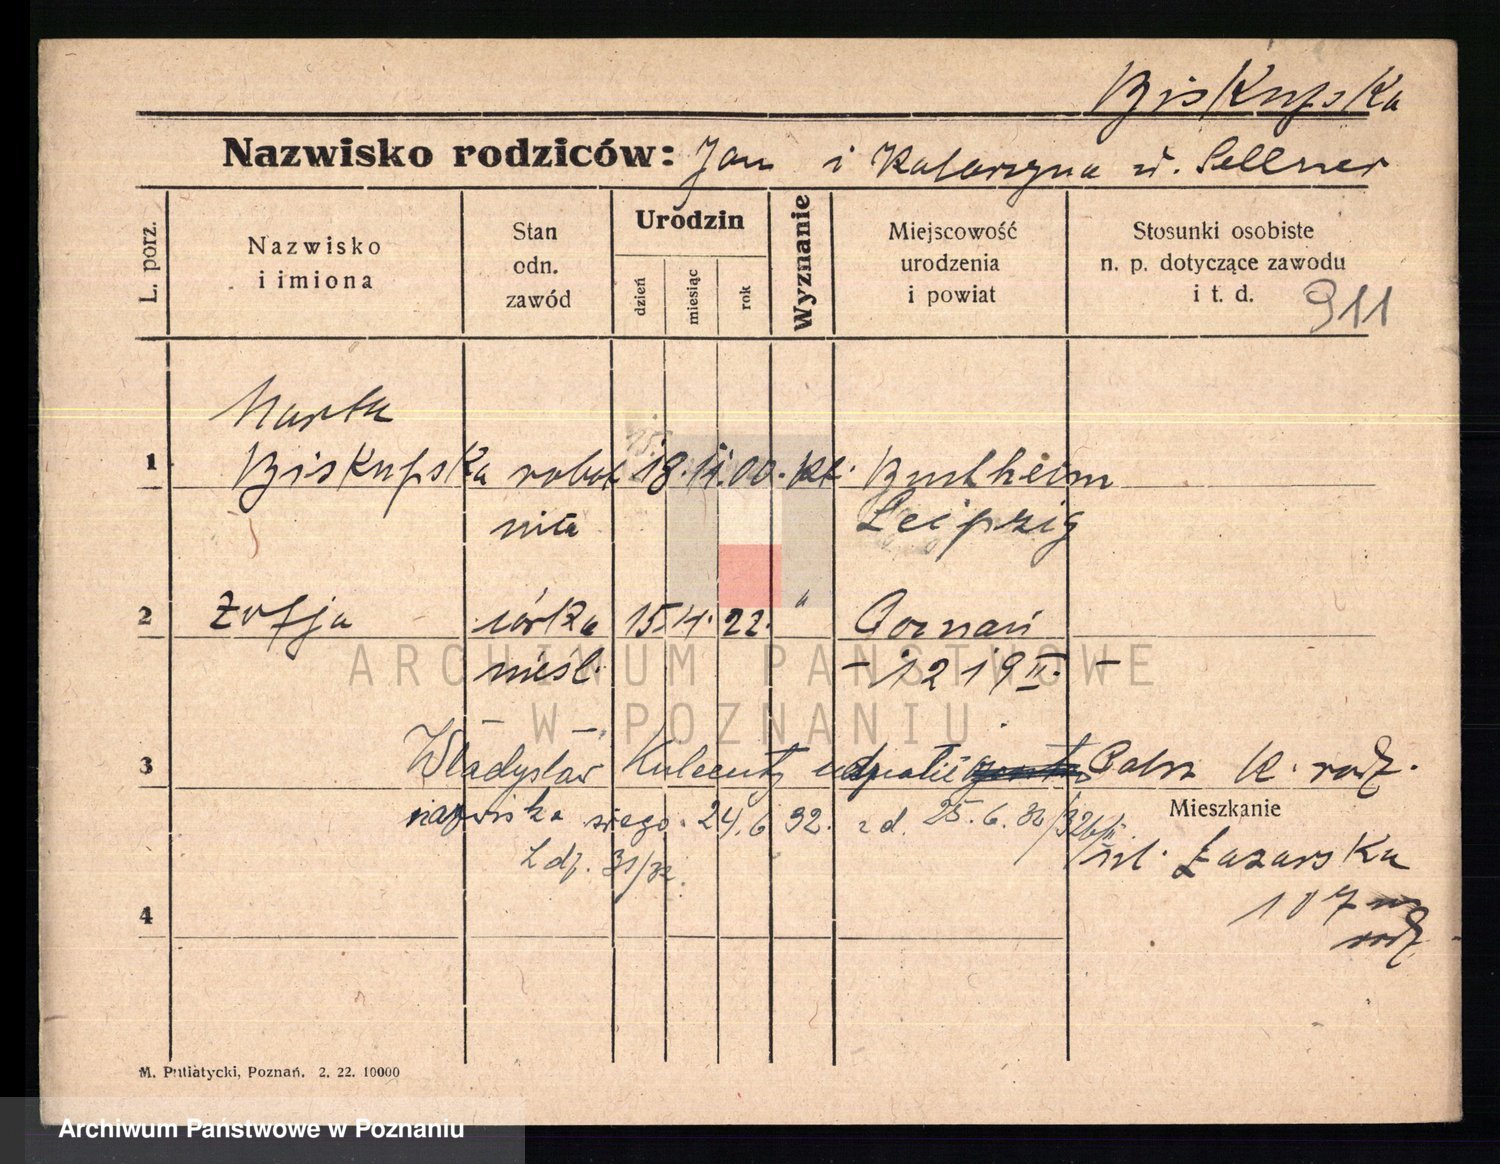 Biskupska
Nazwisko rodziców: Jan i Katarzyna u. Sellner
L. porz.
Nazwisko
i imiona
Stan
odn.
zawód
Urodzin
dzień
miesiąc
rok
Wyznanie
Miejscowość
urodzenia
i powiat
Stosunki osobiste
n. p. dotyczące zawodu
i t. d.
911
Marta
1 Biskupska robot 18. 11. 00. kt.
nica Leipzig
2 Zofja córka 15. 4. 22. " Poznań
nieśl. - 1219 II -
3 Władysław
nazwiska swego. 24. 6 32. z d. 25. 6. 32
L dz. 31/32.
Mieszkanie
ul. Łazarska
107
4
M. Putiatycki, Poznań. 2. 22. 10000
ARCHIWUM PAŃSTWOWE
W POZNANIU
Archiwum Państwowe w Poznaniu